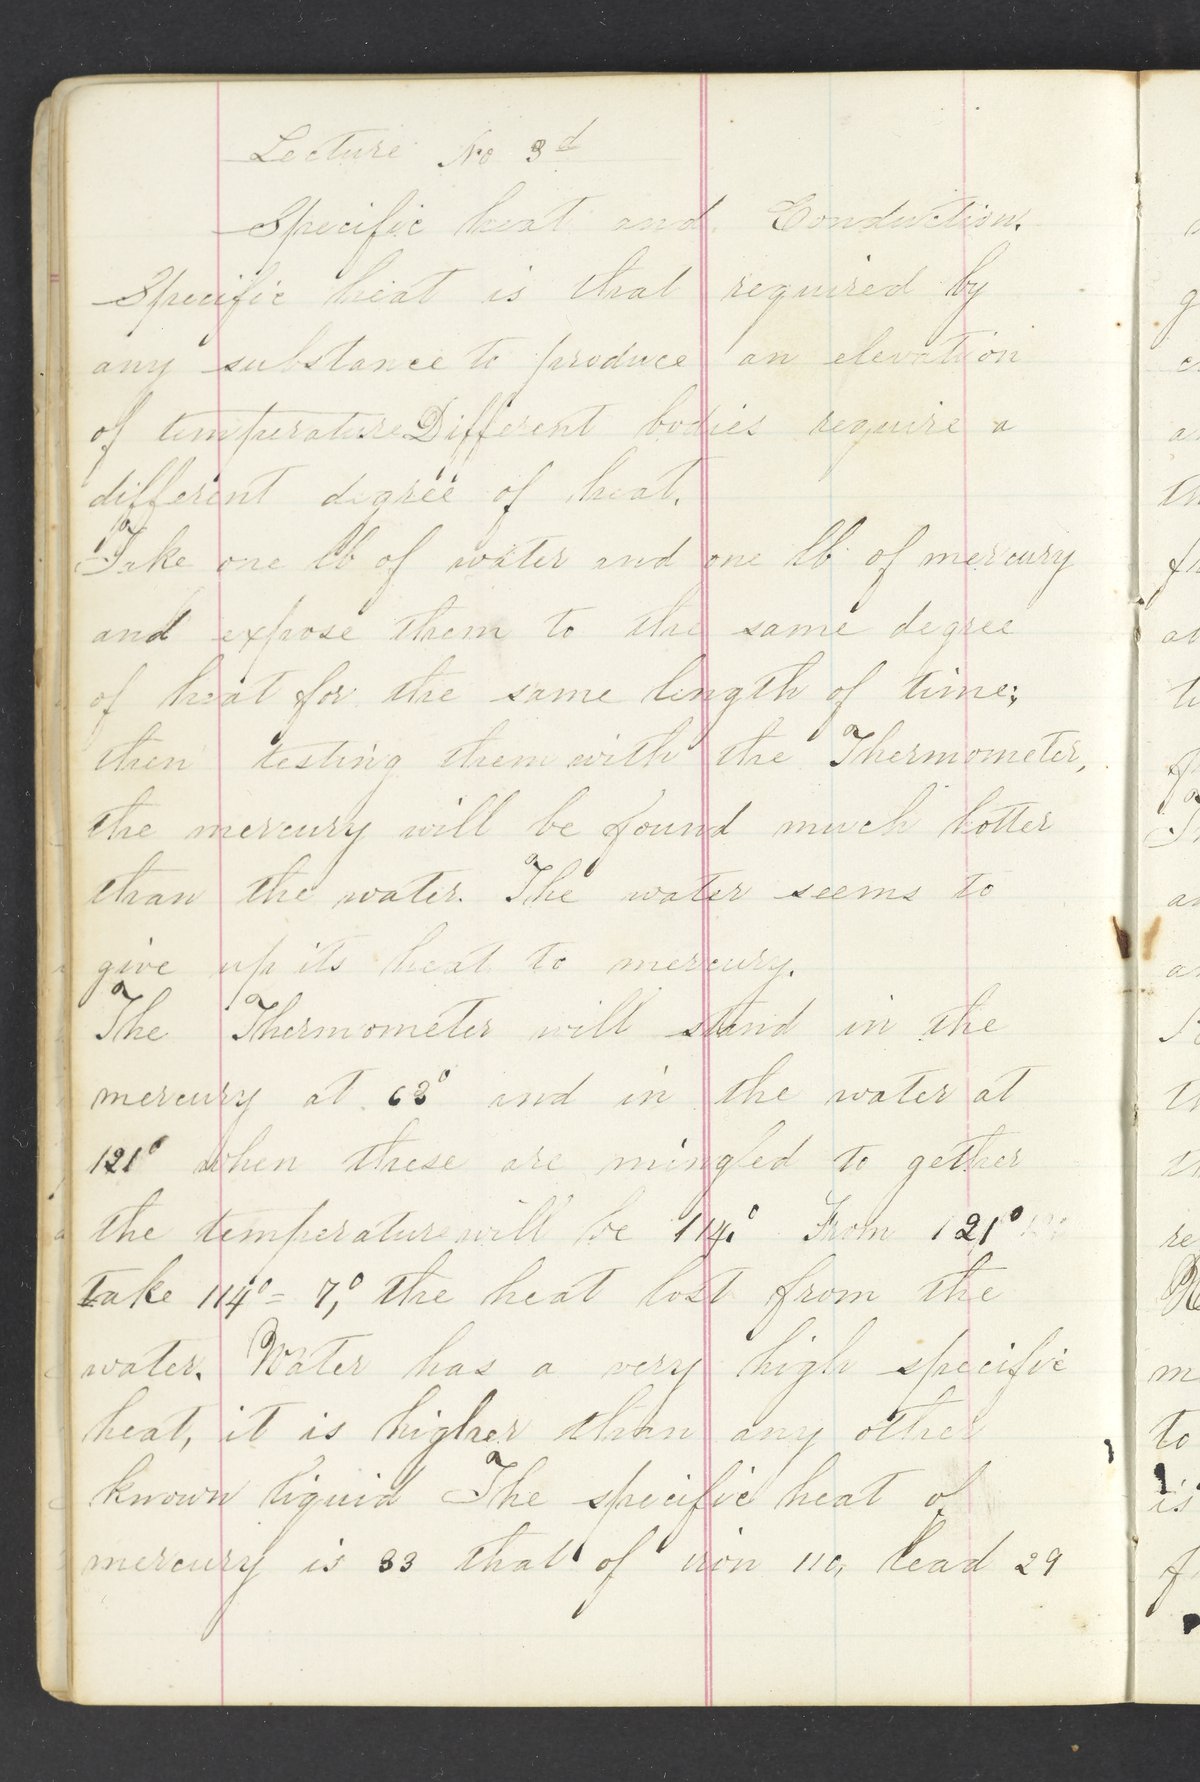 Lecture No 3d
Specific heat and Conduction.
Specific heat is that required by
any substance to produce an elevation
of temperature Different bodies require a
different degree of heat.
Take one lb of water and one lb of mercury
and expose them to the same degree
of heat for the same length of time;
then testing them with the Thermometer,
the mercury will be found much hotter
than the water. The water seems to
give up its heat to mercury.
The Thermometer will stand in the
mercury at 63° and in the water at
121° when these are mingled to gether
the temperature will be 114.° From 121°
take 114° = 7,° the heat lost from the
water. Water has a very high specific
heat, it is higher than any other
known liquid The specific heat of
mercury is 33 that of iron 110, lead 29